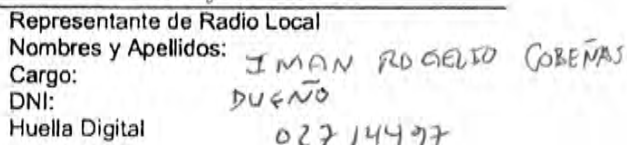 Representante de Radio Local
Nombres y Apellidos: IMAN ROGELIO COBEÑAS
Cargo: DUEÑO
DNI: 02714497
Huella Digital